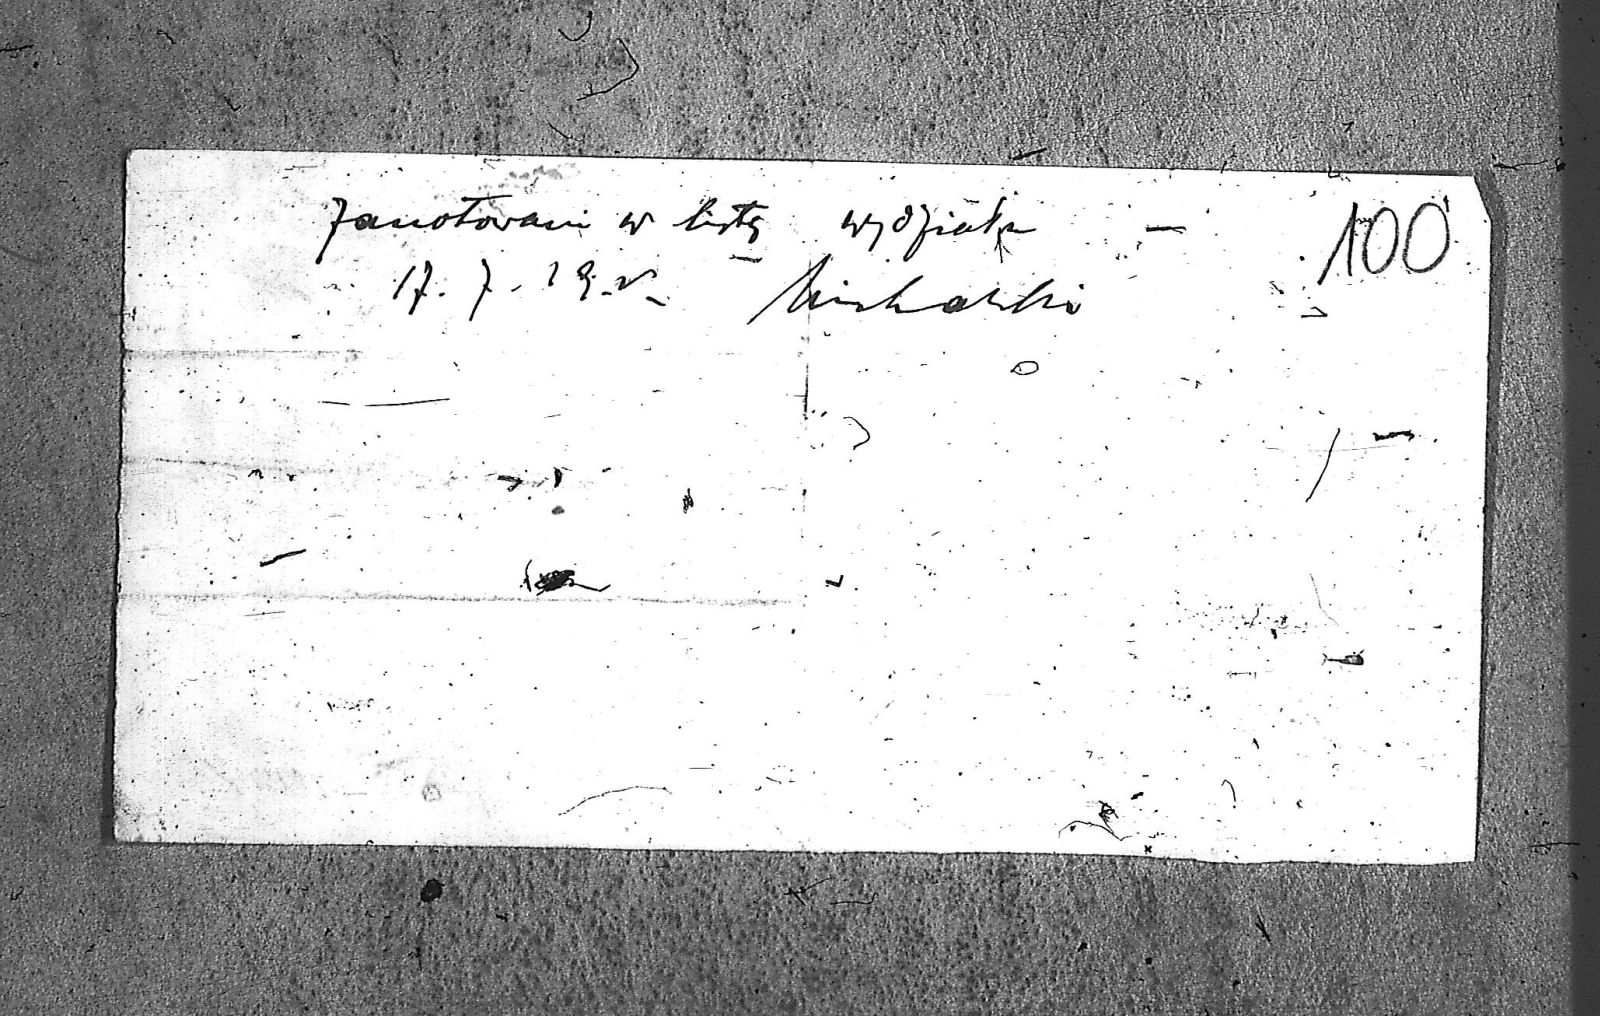 Zanotowani w listę wydziału — 100
17.7.19.r. Michalski